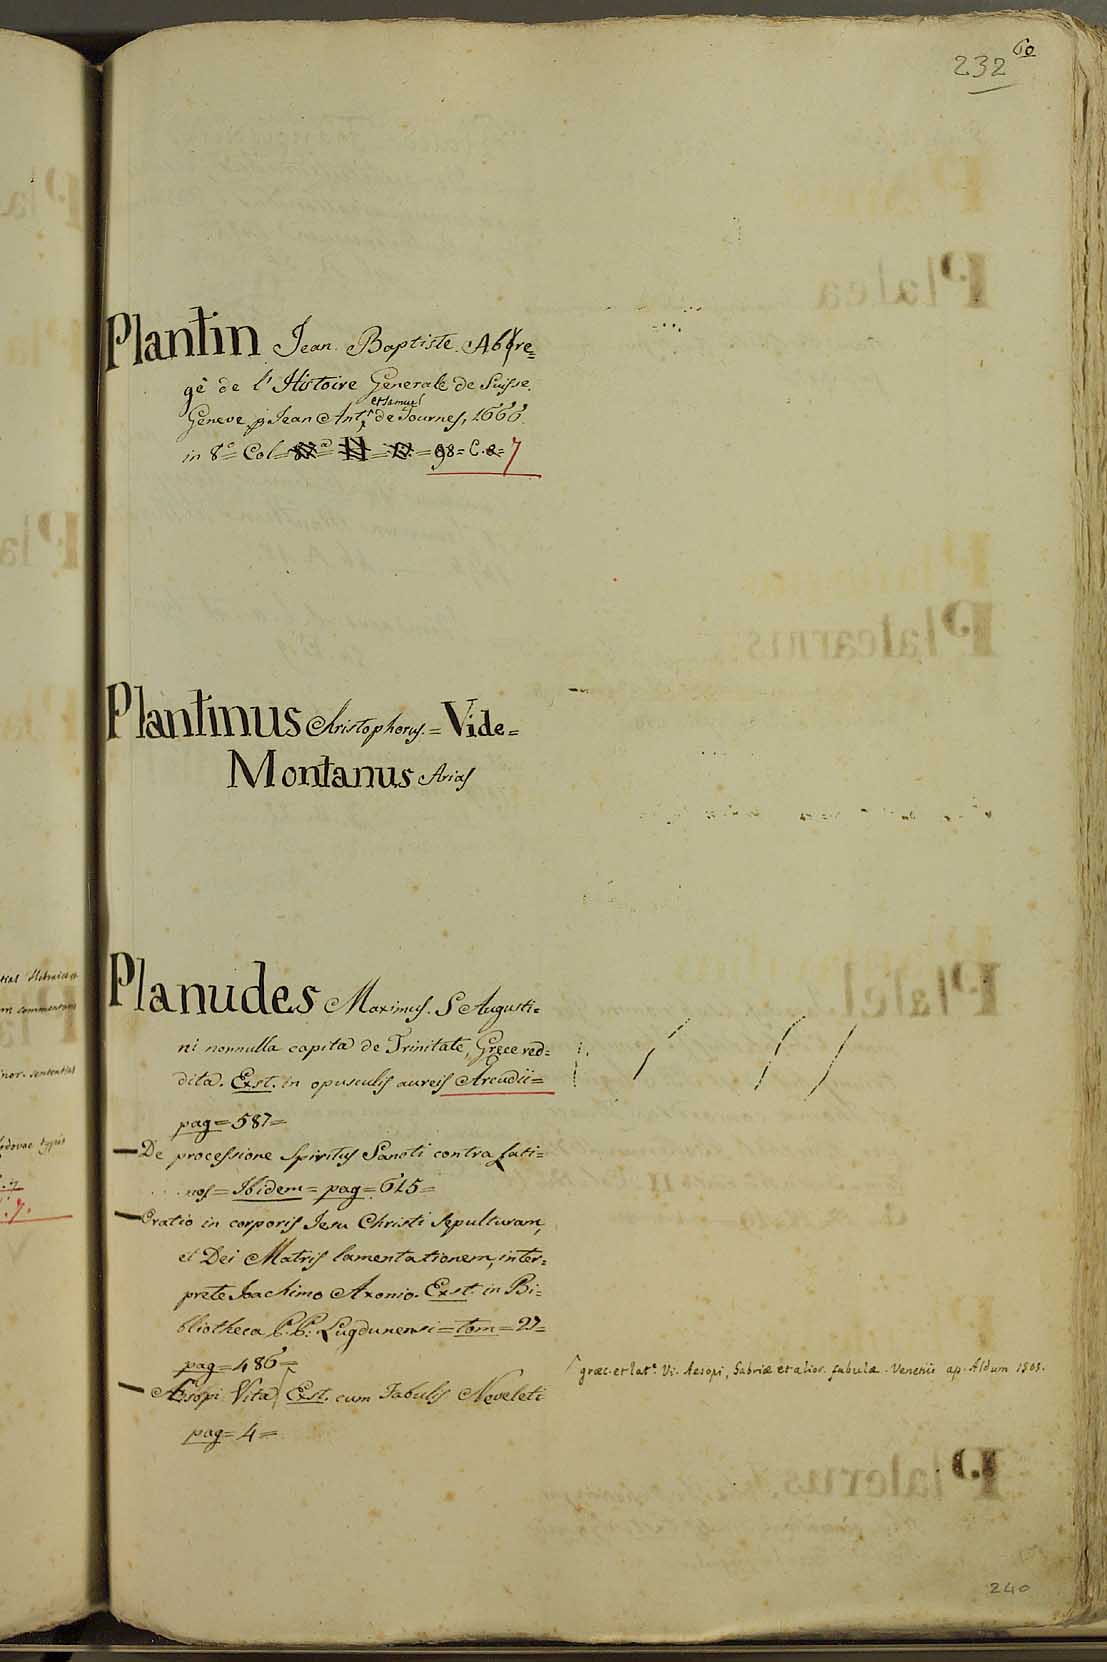 232 60
Plantin Jean Baptiste. Abbre=
gé de l'Histoire Generale de Suisse.
et Samuel
Geneve, p Jean Ant. de Tournes, 1666.
in 8.° Col = 98 = C. 8 = 7
Plantinus Christophorus. = Vide =
Montanus Arias
Planudes Maximus. S Augusti=
ni nonnulla capita de Trinitate, Grece red=
dita. Ext. in opusculis aureis Arcudii =
pag = 587 =
— De processione Spiritus Sancti contra Lati=
nos = Ibidem = pag = 615 =
— Oratio in corporis Jesu Christi sepulturam,
et Dei Matris lamentationem, inter=
prete Joachimo Axonio. Ext. in Bi=
bliotheca P.P. Lugdunensi = tom = 27 =
pag = 486 =
— Aesopi Vita, Ext. cum Fabulis Neveleti
pag = 4 =
græc. et lat.e Vi. Aesopi, Gabriæ et alior. fabulæ. Venetiis ap. Aldum 1505.
240